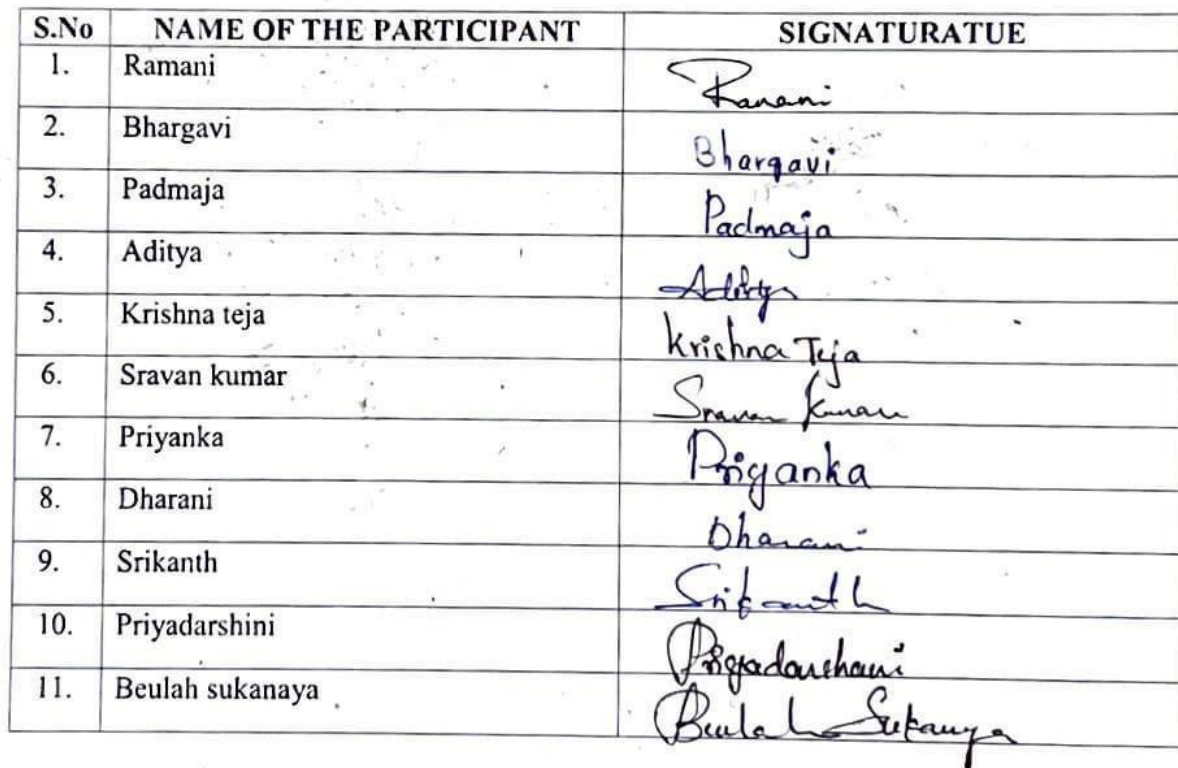 S.No NAME OF THE PARTICIPANT SIGNATURATUE
1. Ramani Ramani
2. Bhargavi Bhargavi
3. Padmaja Padmaja
4. Aditya Aditya
5. Krishna teja Krishna Teja
6. Sravan kumar Sravan Kumar
7. Priyanka Priyanka
8. Dharani Dharani
9. Srikanth Srikanth
10. Priyadarshini Priyadarshani
11. Beulah sukanaya Beulah Sukanya